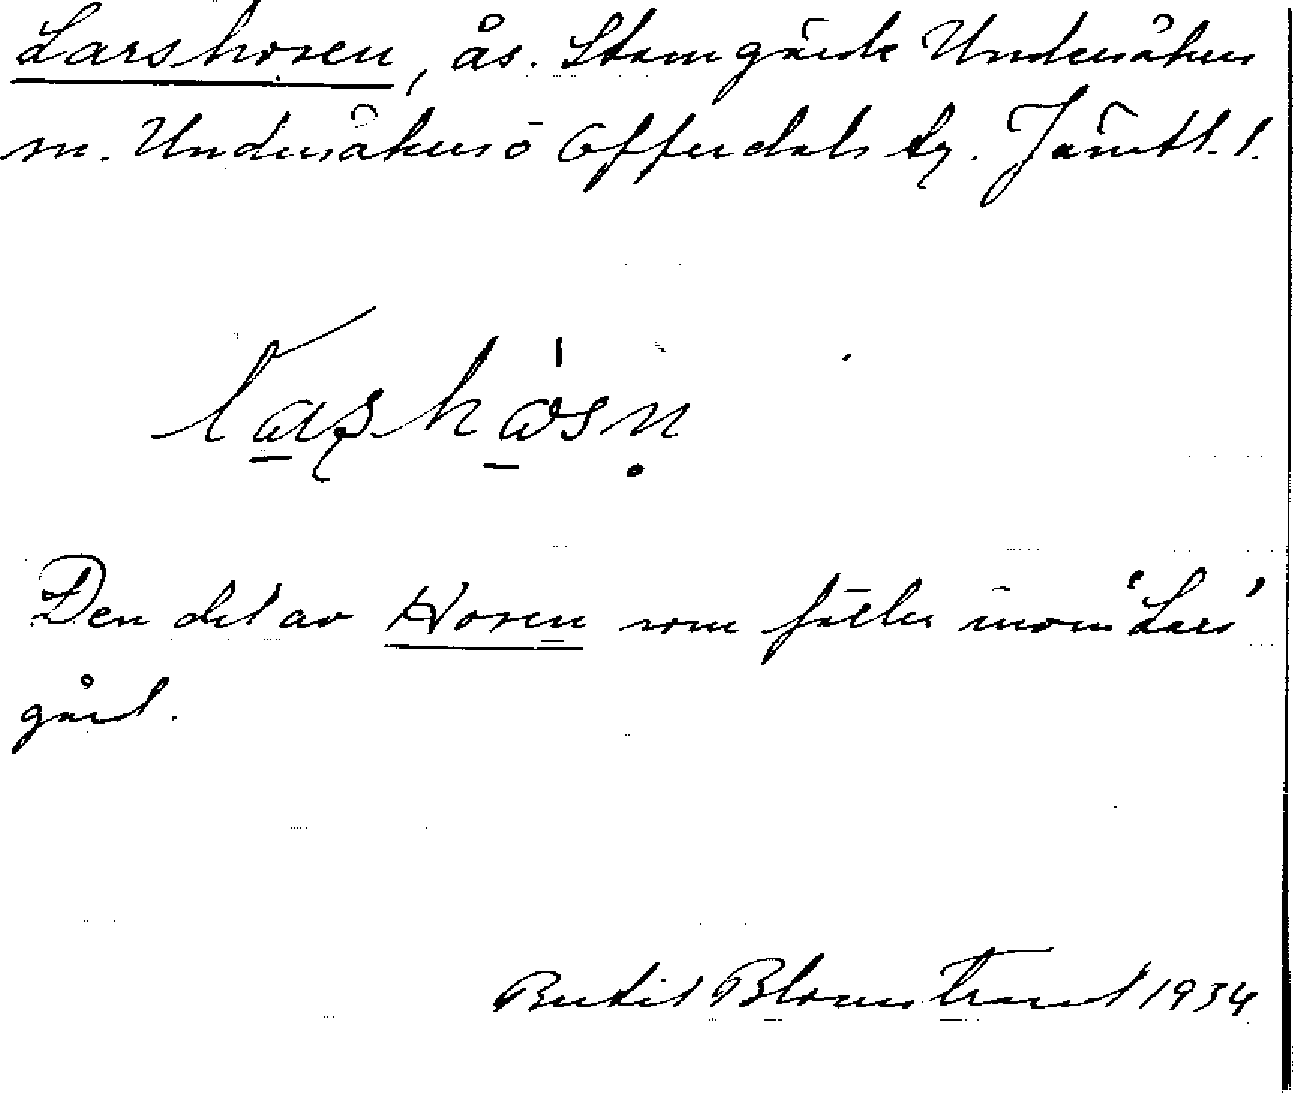 Larshosen, ås. Stamgärde Undersåkers
sn. Undersåkers o Offerdals tg. Jämtl. l.
Den del av Hosen som faller inom Lars'
gård.
Bertil Blomstrand 1934